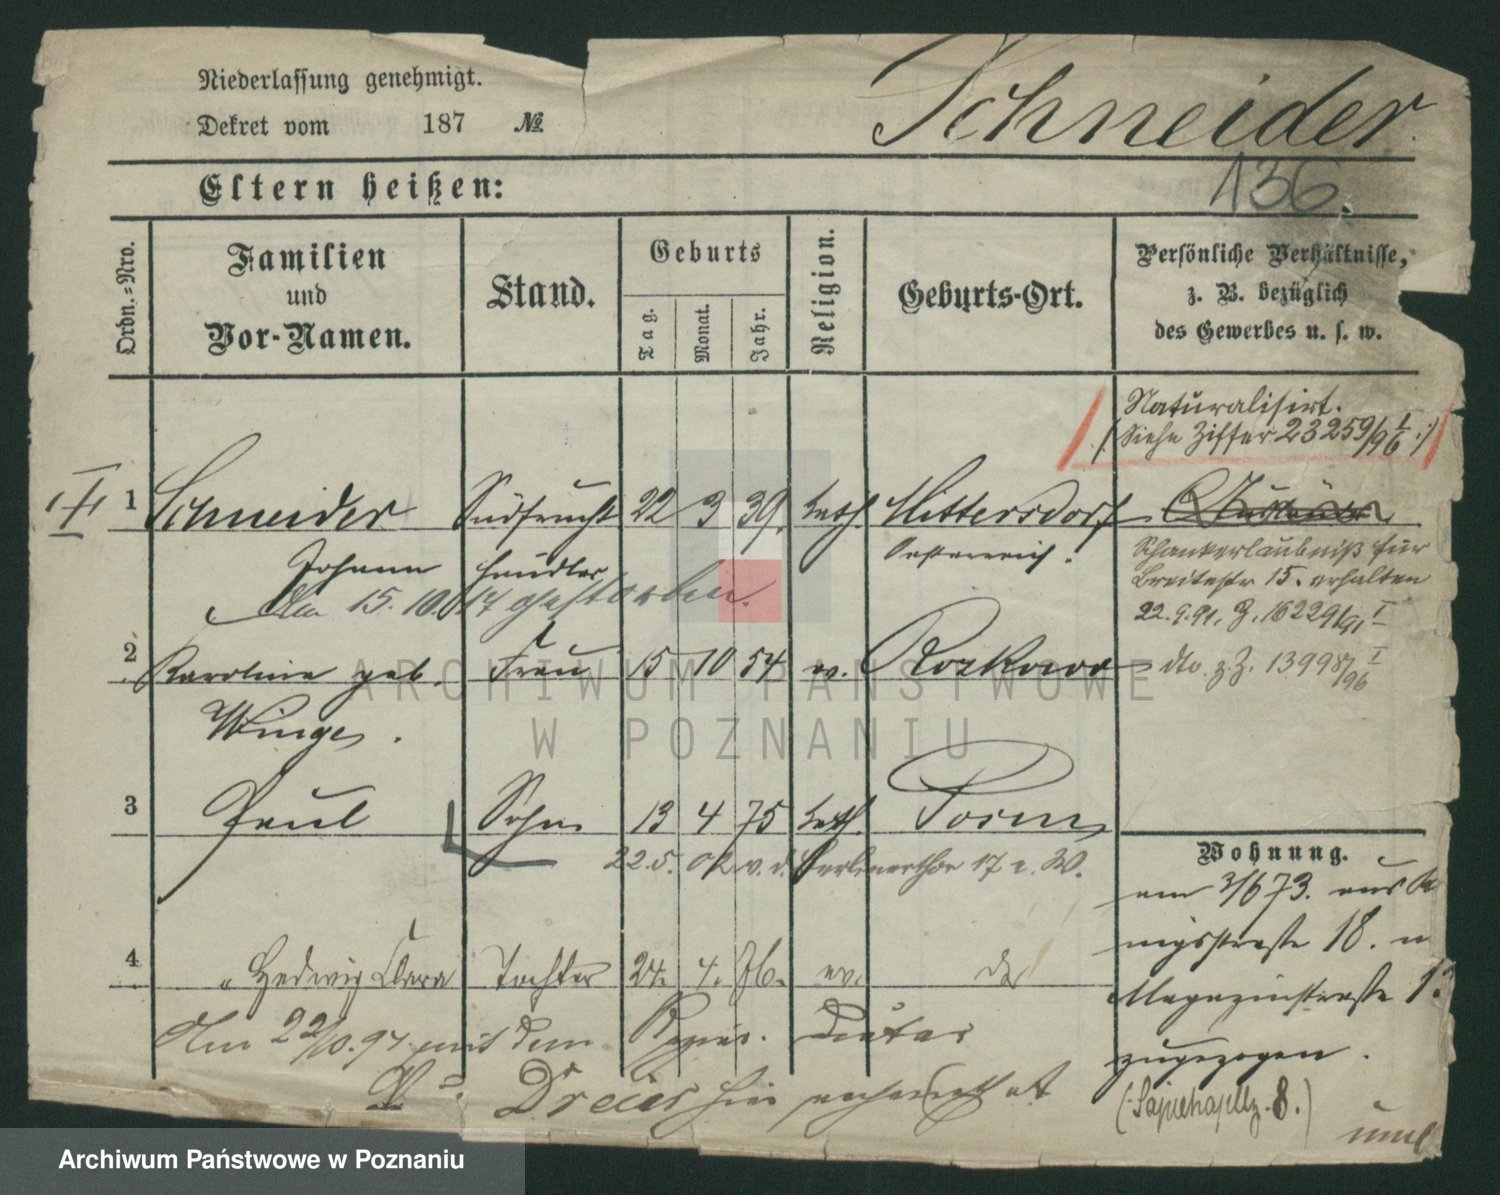 Niederlassung genehmigt.
Schneider
Dekret vom 187 №
136.
Eltern heißen:
Ordn.-Nro.
Familien
und
Vor-Namen.
Stand.
Geburts
Tag.
Monat.
Jahr.
Religion.
Geburts-Ort.
Persönliche Verhältnisse,
z. B. bezüglich
des Gewerbes u. s. w.
Naturalisirt.
(Siehe Ziffer 23259/96 I.)
1 Schneider Südfrucht 22 3 39. kath. Hittersdorf
Johann händler Oesterreich.
Schankerlaubniß für
Breitestr 15. erhalten
22.9.91. Z. 16229/91 I
Am 15. 10. 17 gestorben.
2 Karoline geb. Frau 15 10 54 ev.
dto. z. Z. 13998/96 I
Winge.
3 Paul Sohn 13 4 75 kath. Posen
22.5. 02 v. d. Berlinerthor 17 z. W.
Wohnung.
am 3/6 73. aus
18. n
4 Hedwig Clara Tochter 24. 4. 76. ev. do
Magazinstraße 1
zugezogen.
Am 22/10.97 mit dem
Dreier
8.)
ARCHIWUM PAŃSTWOWE
W POZNANIU
Archiwum Państwowe w Poznaniu